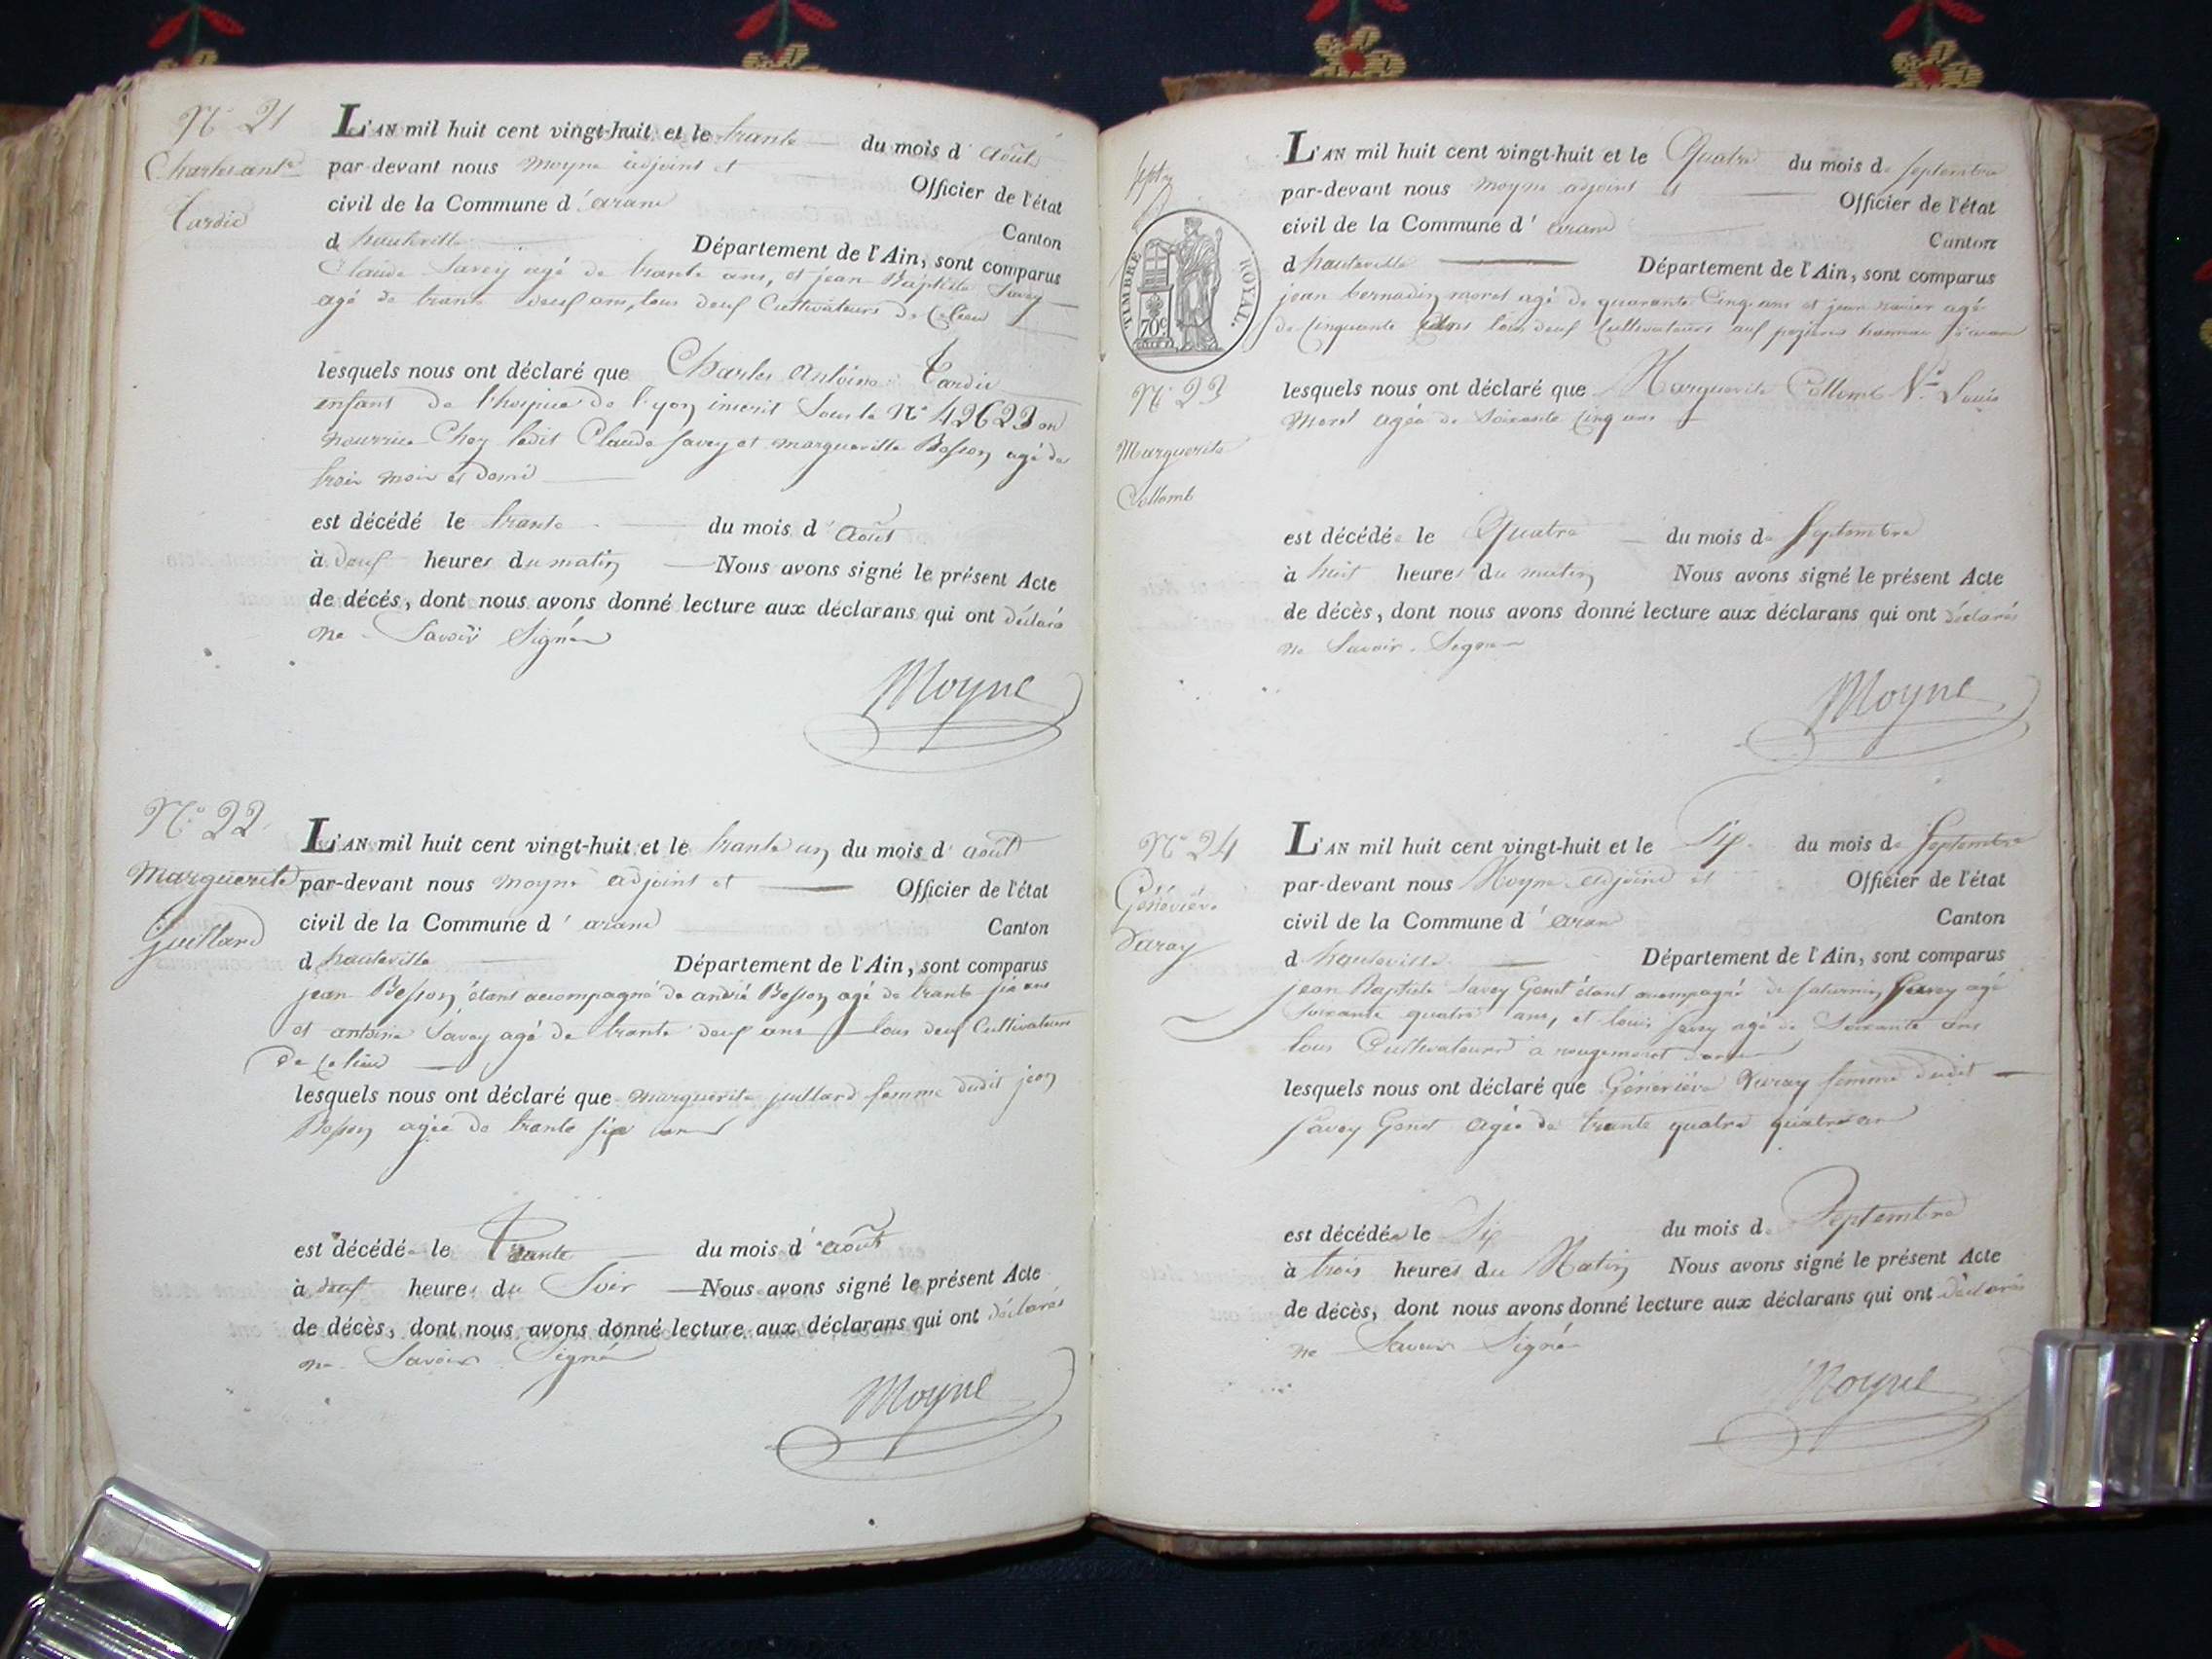 N° 21
Charles ant.e
Tardie
L'AN mil huit cent vingt-huit et le trante du mois d'août
par-devant nous moyne adjoint et Officier de l'état
civil de la Commune d'arane Canton
d hauteville Département de l'Ain, sont comparus
Claude Savey agé de trante ans, et jean Baptiste Savey
agé de trante deux ans, tous deux Cultivateurs de Ce lieu
lesquels nous ont déclaré que Charles Antoine Tardie
enfant de l'hospice de Lyon inscrit Sous le N° 42623 en
nourrice Chez ledit Claude Savey et margueritte Besson agé de
trois mois et demi
est décédé le trante du mois d'août
à deux heures du matin Nous avons signé le présent Acte
de décès, dont nous avons donné lecture aux déclarans qui ont déclaré
ne Savoir Signé
Moyne
N° 22
Marguerite
Juillard
L'AN mil huit cent vingt-huit et le trante un du mois d'août
par-devant nous moyne adjoint et Officier de l'état
civil de la Commune d'arane Canton
d hauteville Département de l'Ain, sont comparus
jean Besson étant accompagné de andré Besson agé de trante six ans
et antoine Savey agé de trante deux ans tous deux Cultivateurs
De Ce lieu
lesquels nous ont déclaré que marguerite juillard femme dudit jean
Besson agée de trante six ans
est décédé le Trante du mois d'août
à deux heures du Soir Nous avons signé le présent Acte
de décès, dont nous avons donné lecture aux déclarans qui ont déclarés
ne Savoir Signé
Moyne
TIMBRE ROYAL.
70c
N° 23
Marguerite
Collomb
L'AN mil huit cent vingt-huit et le Quatre du mois de Septembre
par-devant nous moyne adjoint et Officier de l'état
civil de la Commune d'arane Canton
d hauteville Département de l'Ain, sont comparus
jean bernadin morel agé de quarante Cinq ans et jean agé
de Cinquante ans tous deux Cultivateurs hameau d'arane
lesquels nous ont déclaré que Marguerite Collomb V.e Louis
Morel agée de Soixante Cinq ans
est décédée le Quatre du mois de Septembre
à huit heures du matin Nous avons signé le présent Acte
de décès, dont nous avons donné lecture aux déclarans qui ont déclarés
ne Savoir Signer
Moyne
N° 24
Géneviéve
Varay
L'AN mil huit cent vingt-huit et le Six du mois de Septembre
par-devant nous Moyne adjoint et Officier de l'état
civil de la Commune d'arane Canton
d hauteville Département de l'Ain, sont comparus
jean Baptiste Savey Genet étant accompagné de Saturnin Savey agé
Soixante quatre ans, et louis Savey agé de Soixante ans
tous Cultivateurs a rougemont
lesquels nous ont déclaré que Géneviéve Varay femme dudit
Savey Genet agée de trante quatre quatre an
est décédée le Six du mois de Septembre
à trois heures du Matin Nous avons signé le présent Acte
de décès, dont nous avons donné lecture aux déclarans qui ont déclarés
ne Savoir Signé
Moyne